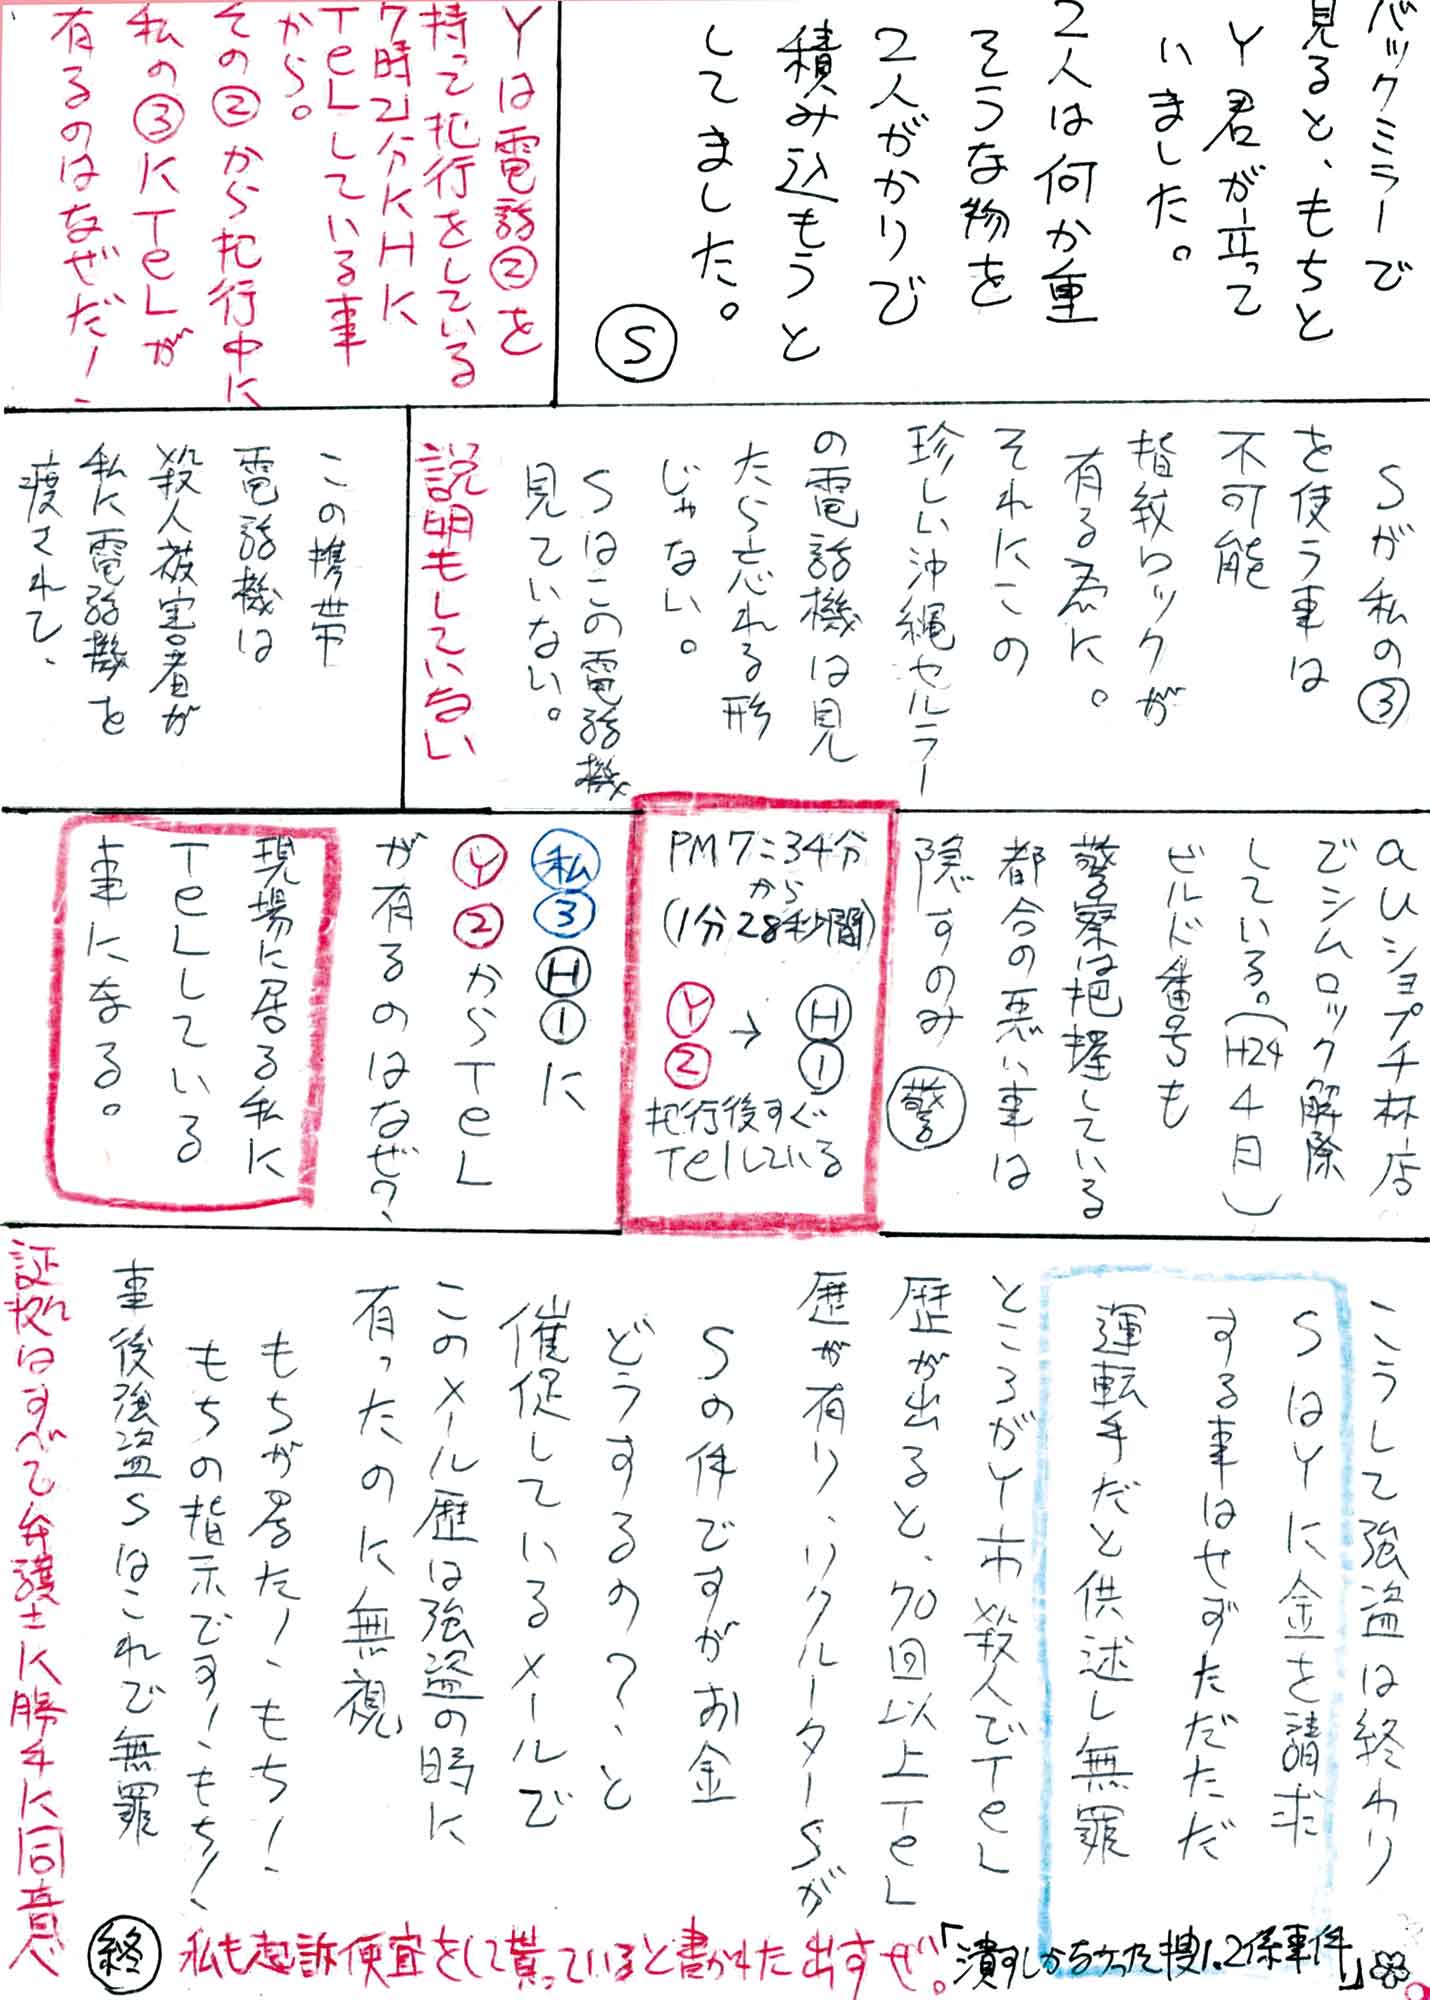 バックミラーで
見ると、もちと
Y君が立って
いました。
2人は何か重
そうな物を
2人がかりで
積み込もうと
してました。
Ⓢ
Yは電話②を
持って犯行をしている
7時21分にHに
TeLしている事
から。
その②から犯行中に
私の③にTeLが
有るのはなぜだ!、
Sが私の③
を使う事は
不可能
指紋ロックが
有る為に。
それにこの
珍しい沖縄セルラー
の電話機は見
たら忘れる形
じゃない。
Sはこの電話機
見ていない。
説明もしていない
この携帯
電話機は
殺人被害者が
私に電話機を
渡されて、
auショップチ林店
でシムロック解除
している。(H24 4月)
ビルド番号も
警察は把握している
都合の悪い事は
隠すのみ 警
PM7:34分
から
(1分28秒間)
Ⓨ② → Ⓗ①
犯行後すぐ
Telしている
私③Ⓗ①に
Ⓨ②からTeL
が有るのはなぜ?、
現場に居る私に
TeLしている
事になる。
こうして強盗は終わり
SはYに金を請求
する事はせずただただ
運転手だと供述し無罪
ところがY市殺人でTeL
歴が出ると、70回以上TeL
歴が有り、リクルーターSが
Sの件ですがお金
どうするの?、と
催促しているメールで
このメール歴は強盗の時に
有ったのに無視
もちが居た!、もち!、
もちの指示です!、もち!、
事後強盗Sはこれで無罪
証拠はすべて弁護士に勝手に同意
終 私も起訴便宜をして貰っていると書かれた出すぜ。「潰すしかなかった捜1.2係事件」